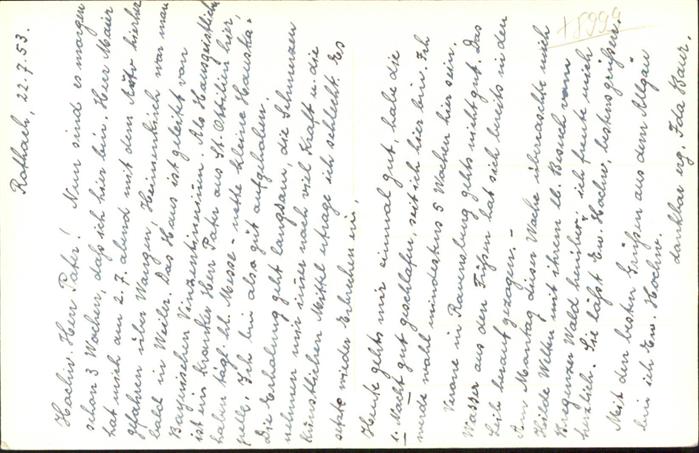 Rohbach, 22.7.53.
+8999
Hochw. Herr Pater! Nun sind es morgen
schon 3 Wochen, daß ich hier bin. Herr Maier
hat mich am 2.7. abend mit dem Auto hierher
gefahren über Wangen, Heimenkirch war man
bald in Weiler. Das Haus ist geleitet von
Bayrischen Vinzentinerinnen. Als Hausgeistlicher
ist ein kranker Herr Pater aus St. Ottilien hier,
haben tägl. hl. Messe - nette kleine Hauska-
pelle. Ich bin also gut aufgehoben.
Die Erholung geht langsam, die Schmerzen
nehmen mir immer noch viel Kraft u. die
künstlichen Mittel ertrage ich schlecht. Es
stets wieder Erbrechen ein,
Heute gehts mir einmal gut, habe die
1. Nacht gut geschlafen, seit ich hier bin. Ich
werde wohl mindestens 5 Wochen hier sein.
Verone in Ravensburg gehts nicht gut. Das
Wasser aus den Füßen hat sich bereits in den
Leib herauf gezogen. -
Am Montag dieser Woche überraschte mich
Hilde Welten mit ihrem lb. Besuch vom
Bregenzer Wald herüber, ich freute mich
herzlich. Sie läßt Ew. Hochw. bestens grüßen.
Mit den besten Grüßen aus dem Allgäu
bin ich Ew. Hochw.
dankbar erg. Ida Baur.